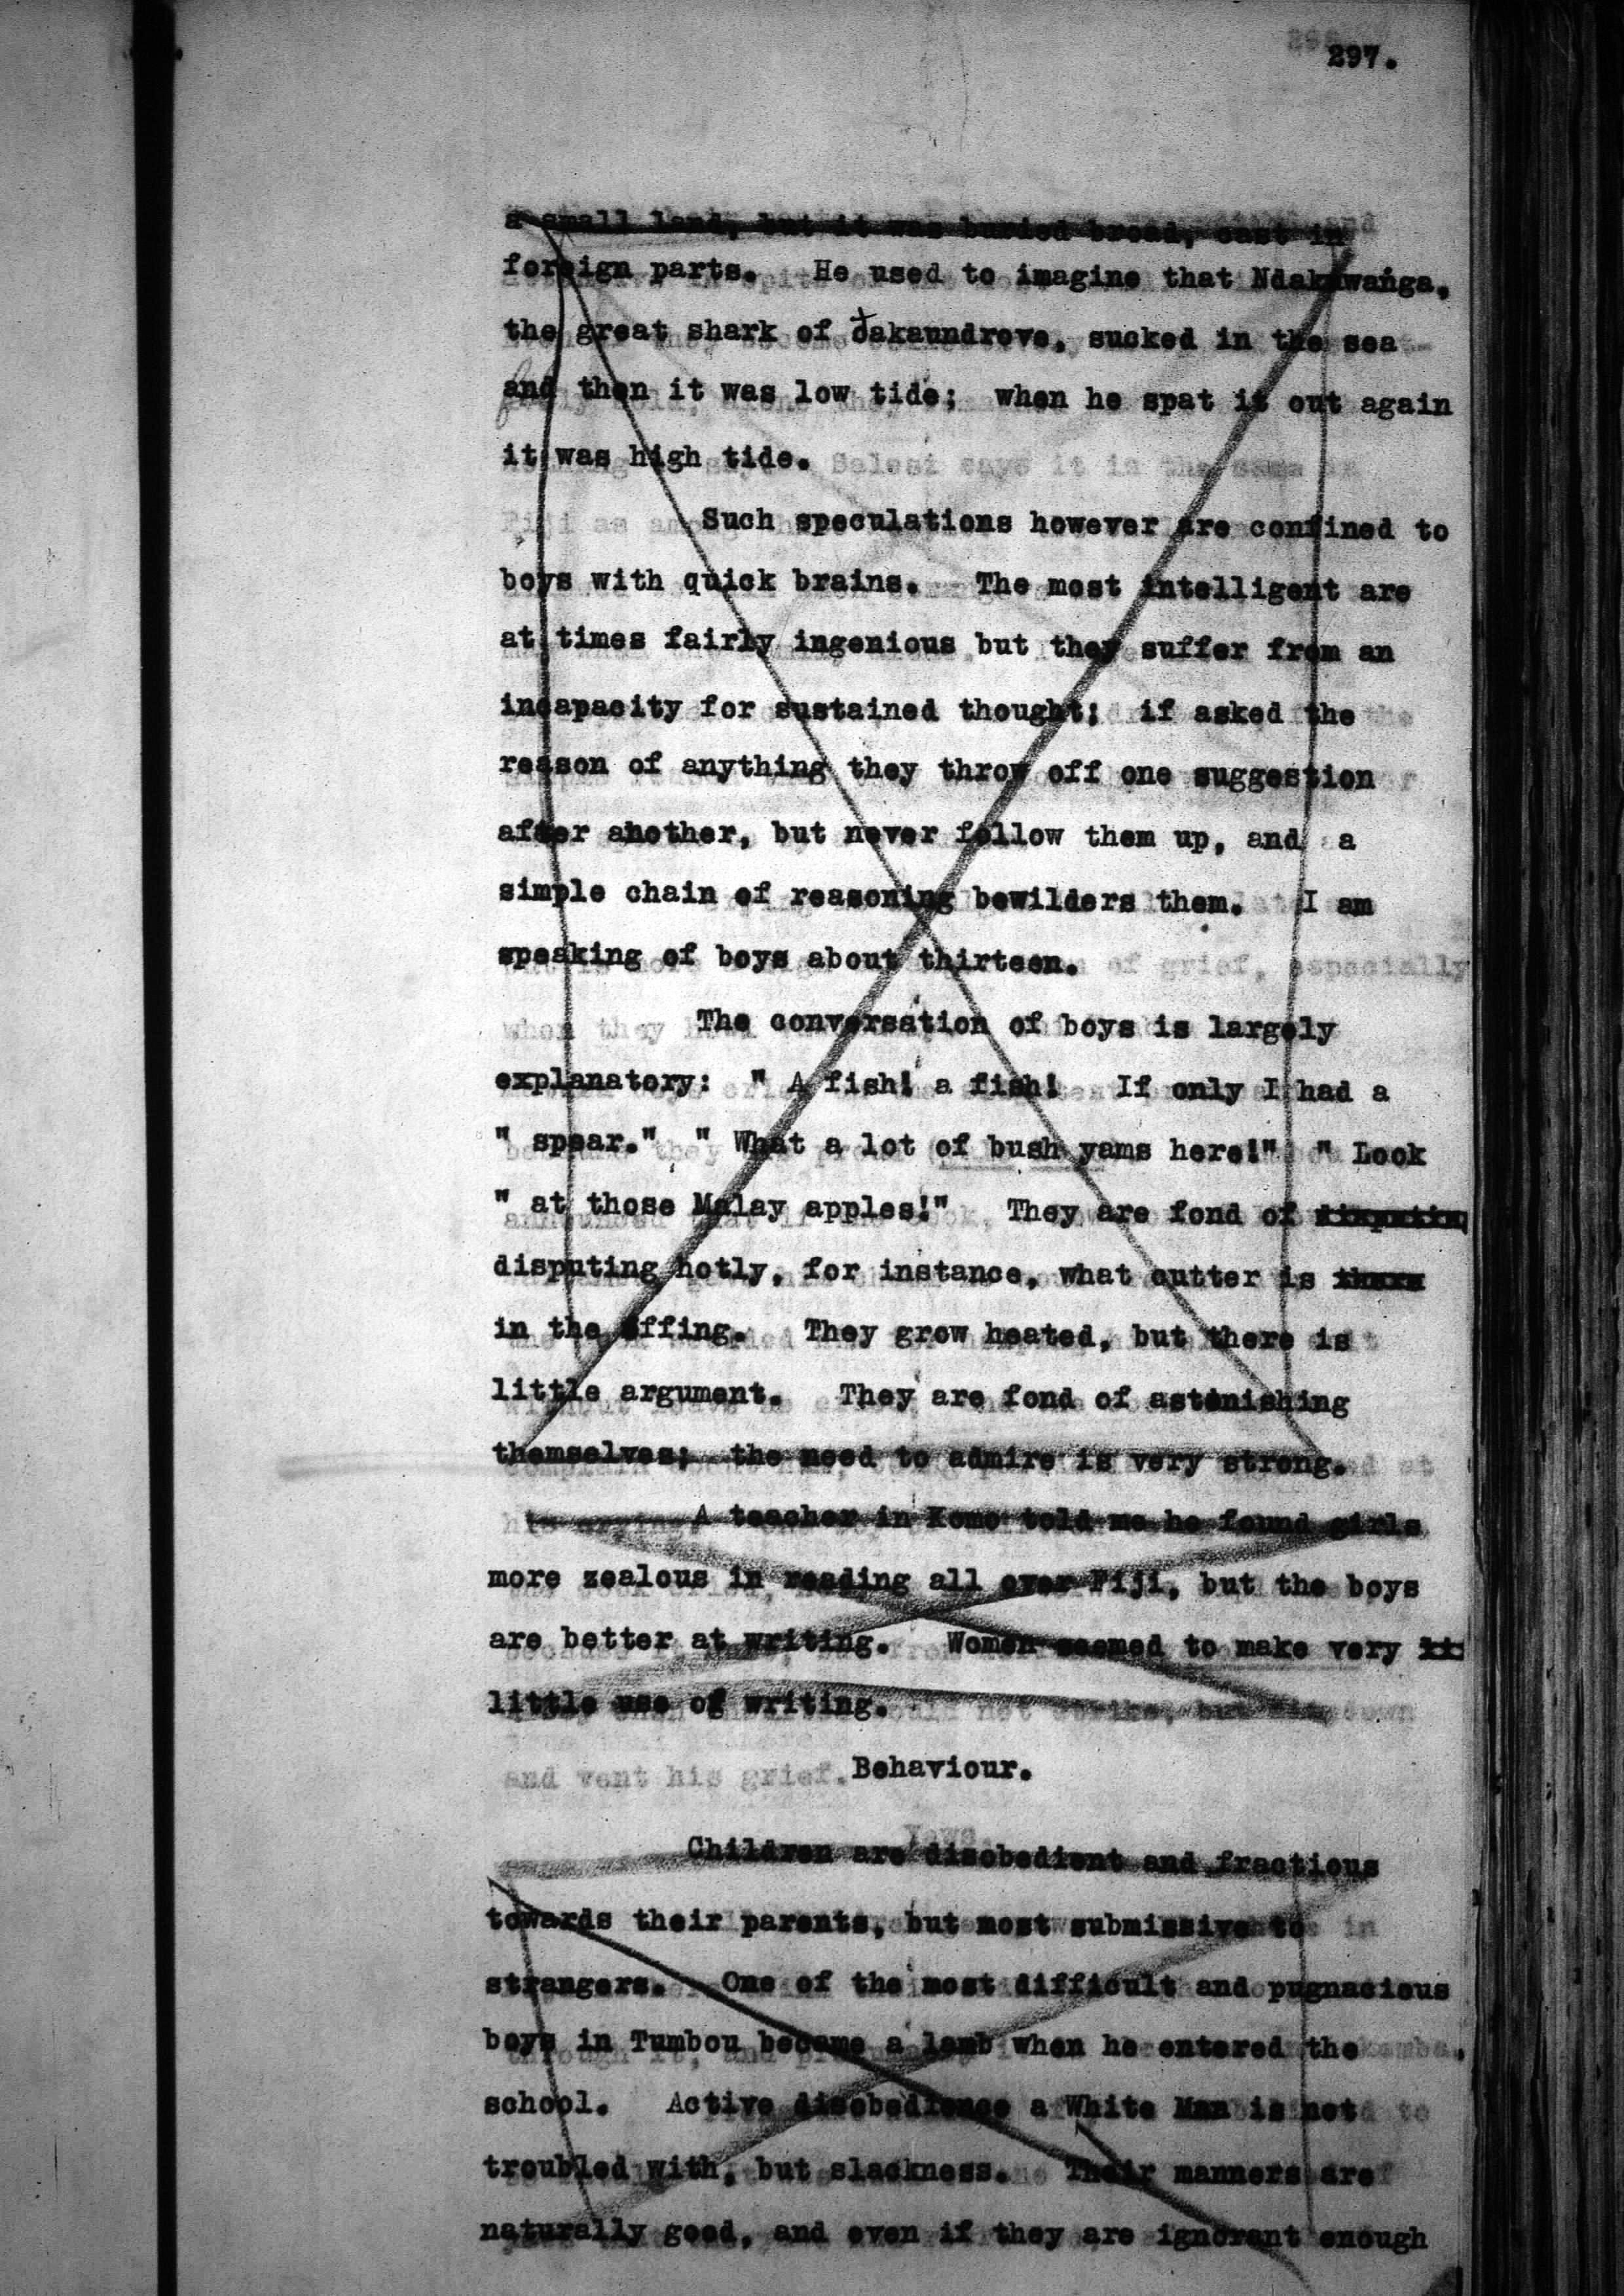 297.
a small land, but it was buried broad, cast in
foreign parts. He used to imagine that Ndakuwanga,
the great shark of Cakaundrove, sucked in the sea
and then it was low tide; when he spat it out again
it was high tide.
Such speculations however are confined to
boys with quick brains. The most intelligent are
at times fairly ingenious but they suffer from an
incapacity for sustained thought; if asked the
reason of anything they throw off one suggestion
after another, but never follow them up, and a
simple chain of reasoning bewilders them. I am
speaking of boys about thirteen.
The conversation of boys is largely
explanatory: " A fish! a fish! If only I had a
" spear." " What a lot of bush yams here!" " Look
" at those Malay apples!" They are fond of
disputing hotly, for instance, what cutter is there
in the offing. They grow heated, but there is
little argument. They are fond of astonishing
themselves; the need to admire is very strong.
A teacher in Komo told me he found girls
more zealous in reading all over Fiji, but the boys
are better at writing. Women seemed to make very
little use of writing.
Behaviour.
Children are disobedient and fractious
towards their parents, but most submissive to
strangers. One of the most difficult and pugnacious
boys in Tumbou became a lamb when he entered the
school. Active disobedience a White Man is not
troubled with, but slackness. Their manners are
naturally good, and even if they are ignorant enough